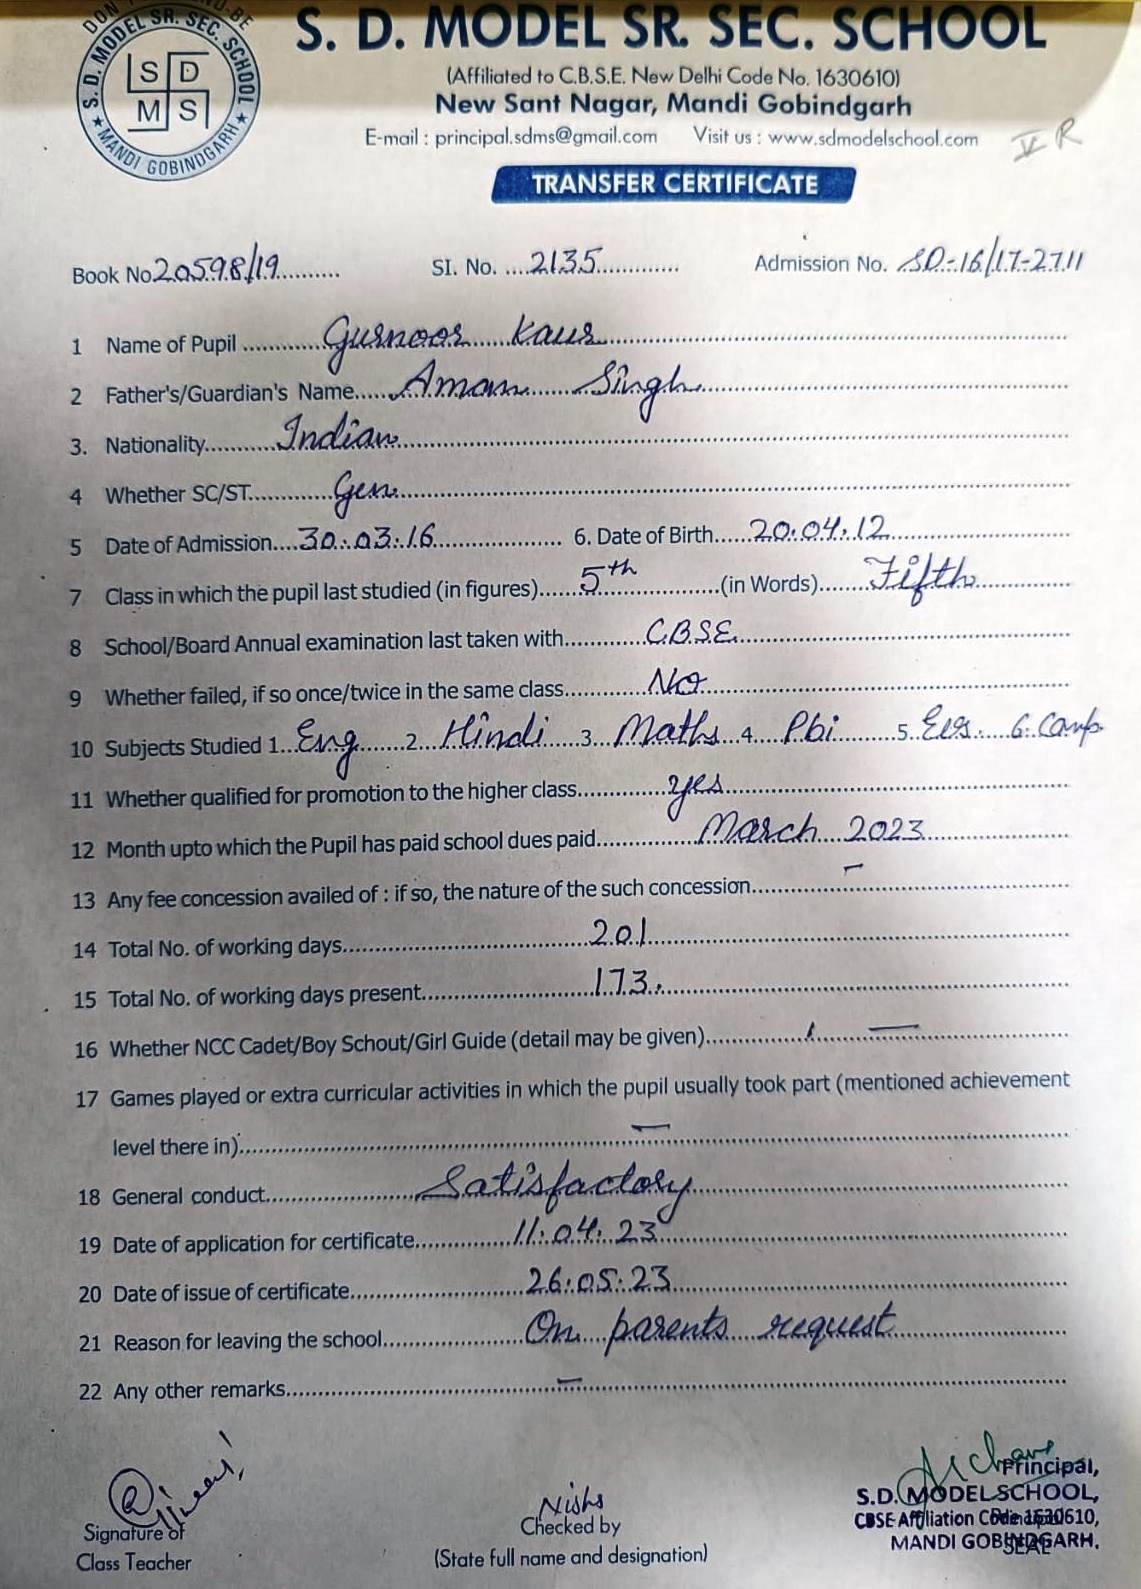 S. D. MODEL SR. SEC. SCHOOL
S. D. MODEL SR. SEC. SCHOOL
S D
M S
★ MANDI GOBINDGARH ★
(Affiliated to C.B.S.E. New Delhi Code No. 1630610)
New Sant Nagar, Mandi Gobindgarh
E-mail : principal.sdms@gmail.com Visit us : www.sdmodelschool.com
V R
TRANSFER CERTIFICATE
Book No 20598/19 SI. No. 2135 Admission No. SD-16/17-2711
1 Name of Pupil Gurnoor Kaur
2 Father's/Guardian's Name Aman Singh
3. Nationality Indian
4 Whether SC/ST Gen
5 Date of Admission 30.03.16 6. Date of Birth 20.04.12
7 Class in which the pupil last studied (in figures) 5th (in Words) Fifth
8 School/Board Annual examination last taken with C.B.S.E.
9 Whether failed, if so once/twice in the same class No
10 Subjects Studied 1. Eng 2. Hindi 3. Maths 4. Pbi 5. Evs. 6. Comp
11 Whether qualified for promotion to the higher class yes
12 Month upto which the Pupil has paid school dues paid March 2023
13 Any fee concession availed of : if so, the nature of the such concession —
14 Total No. of working days 201
15 Total No. of working days present 173.
16 Whether NCC Cadet/Boy Schout/Girl Guide (detail may be given) —
17 Games played or extra curricular activities in which the pupil usually took part (mentioned achievement
level there in) —
18 General conduct Satisfactory
19 Date of application for certificate 11.04.23
20 Date of issue of certificate 26.05.23
21 Reason for leaving the school On parents request
22 Any other remarks —
Nishs
Signature of
Class Teacher
Checked by
(State full name and designation)
Principal,
S.D. MODEL SCHOOL,
CBSE Affiliation Code 1630610,
MANDI GOBINDGARH.
Principal
SEAL